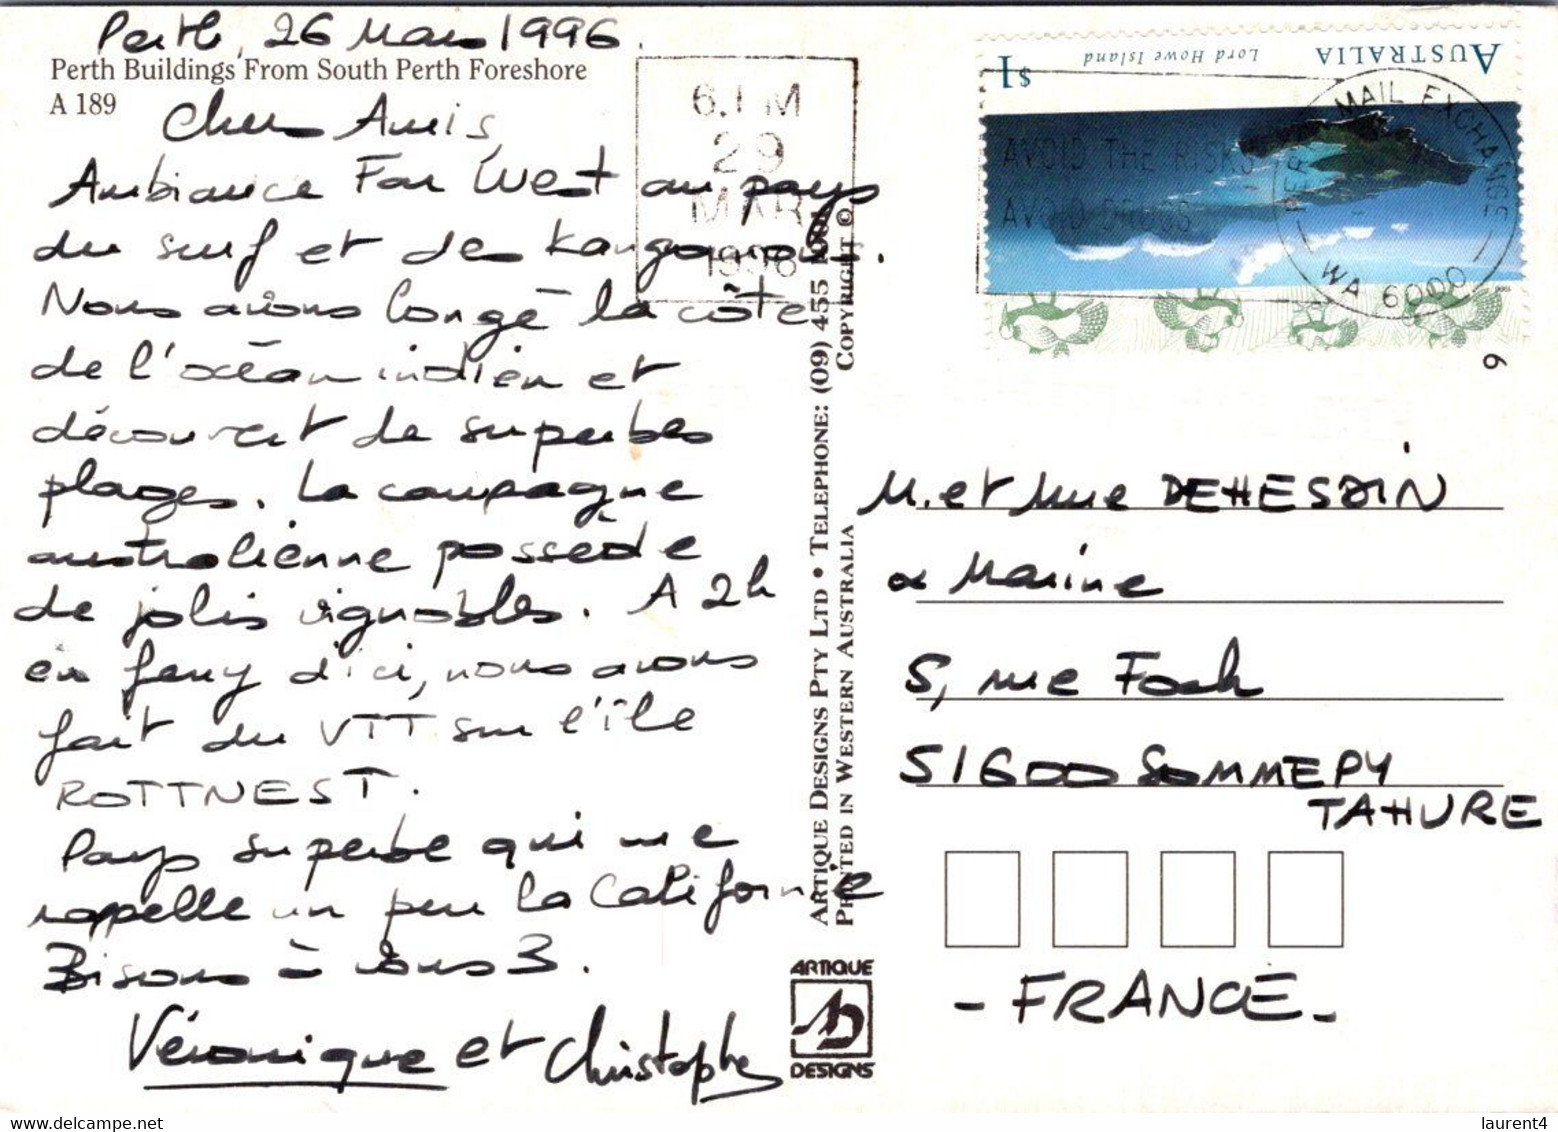 Perth, 26 Mars 1996.
Perth Buildings From South Perth Foreshore
A 189
Chers Amis,
Ambiance Far West au pays
du surf et des Kangourous.
Nous avons longé la côte
de l'océan indien et
découvert de superbes
plages. La campagne
australienne possède
de jolis vignobles. A 2h
en ferry d'ici, nous avons
fait du VTT sur l'île
ROTTNEST.
Pays superbe qui me
rappelle un peu la Californie
Bisous à vous 3.
Véronique et Christophe
6. PM
29
MAR
1996
ARTIQUE DESIGNS PTY LTD • TELEPHONE: (09) 455
PRINTED IN WESTERN AUSTRALIA COPYRIGHT ©
ARTIQUE
DESIGNS
AUSTRALIA
Lord Howe Island
$1
AVOID THE RISKS
AVOID DRUGS
MAIL EXCHANGE
WA 6000
6
M. et Mme DEHESDIN
& Marine
5, rue Foch
51600 SOMMEPY
TAHURE
- FRANCE -
laurent4